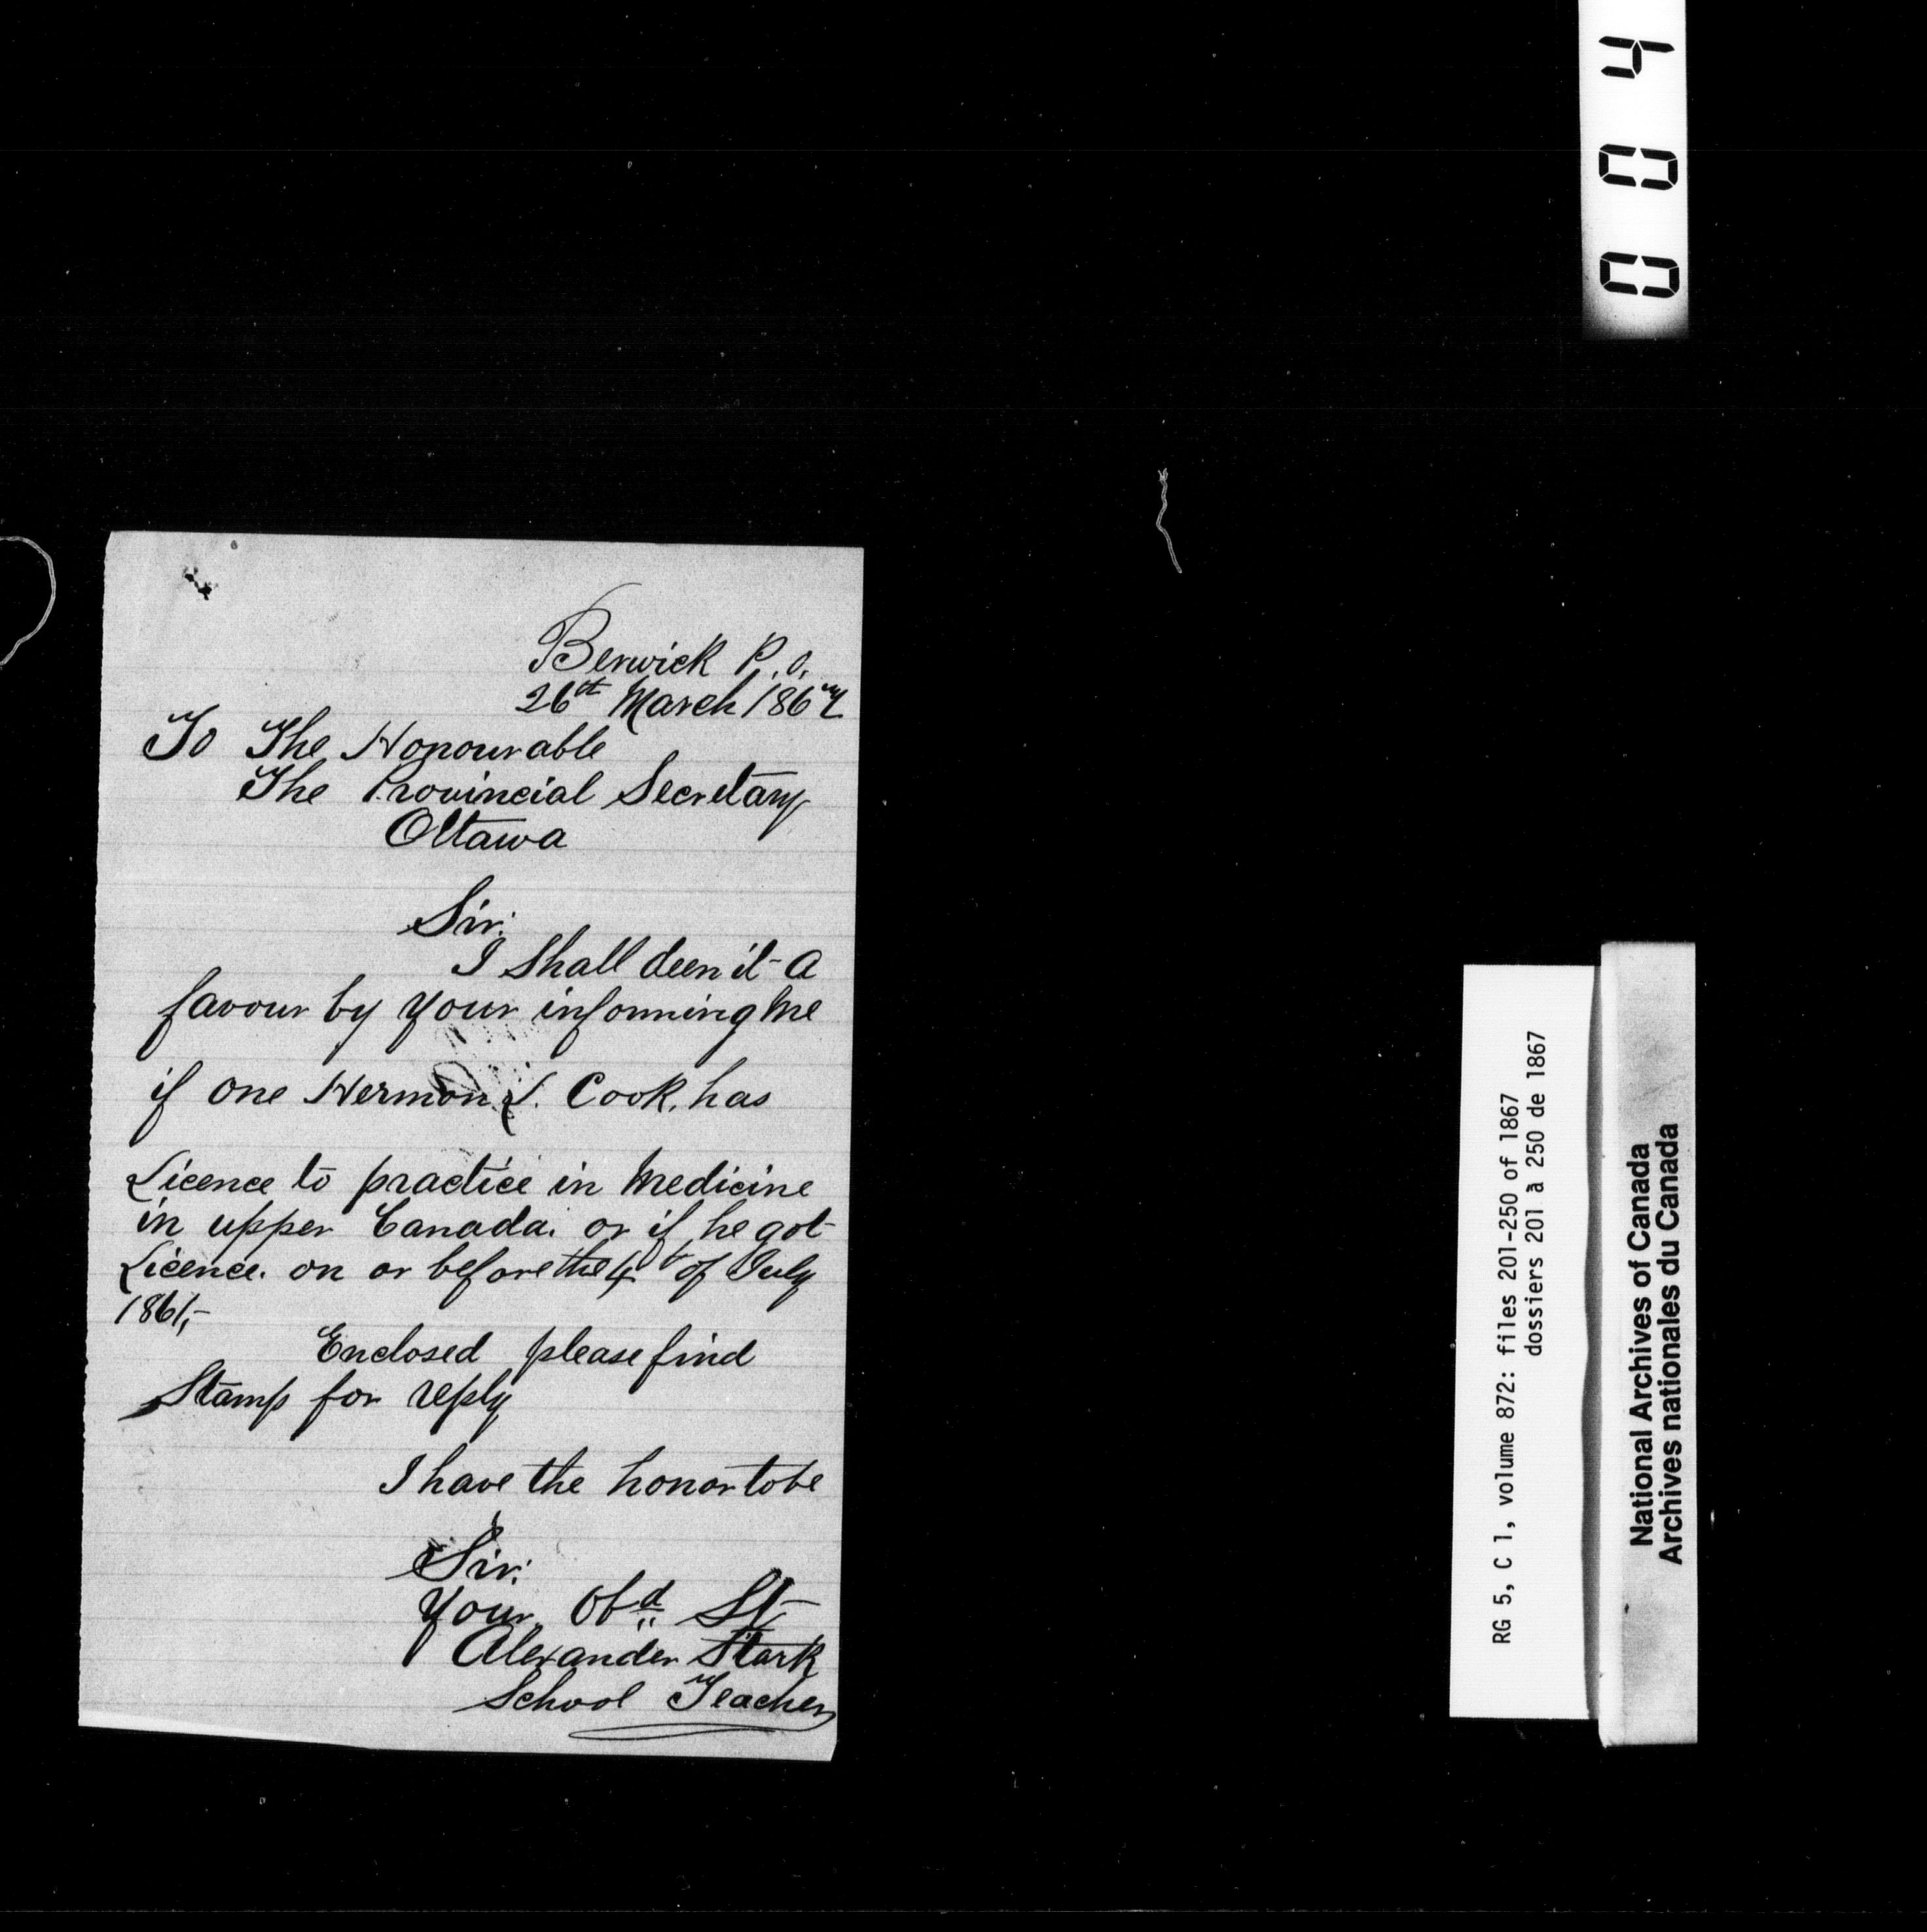 Berwick P.O.
26th March 1867
To The Honourable
The Provincial Secretary
Ottawa
Sir.
I Shall deem it a
favour by your informing me
if one Hermon L. Cook, has
Licence to practice in Medicine
in upper Canada. or if he got
Licence. on or before the 4th of July
1861,-
Enclosed please find
Stamp for reply
I have the honor to be
Sir.
Your Obd St
Alexander Stark
School Teacher
004
RG 5, C 1, volume 872: files 201-250 of 1867
dossiers 201 à 250 de 1867
National Archives of Canada
Archives nationales du Canada